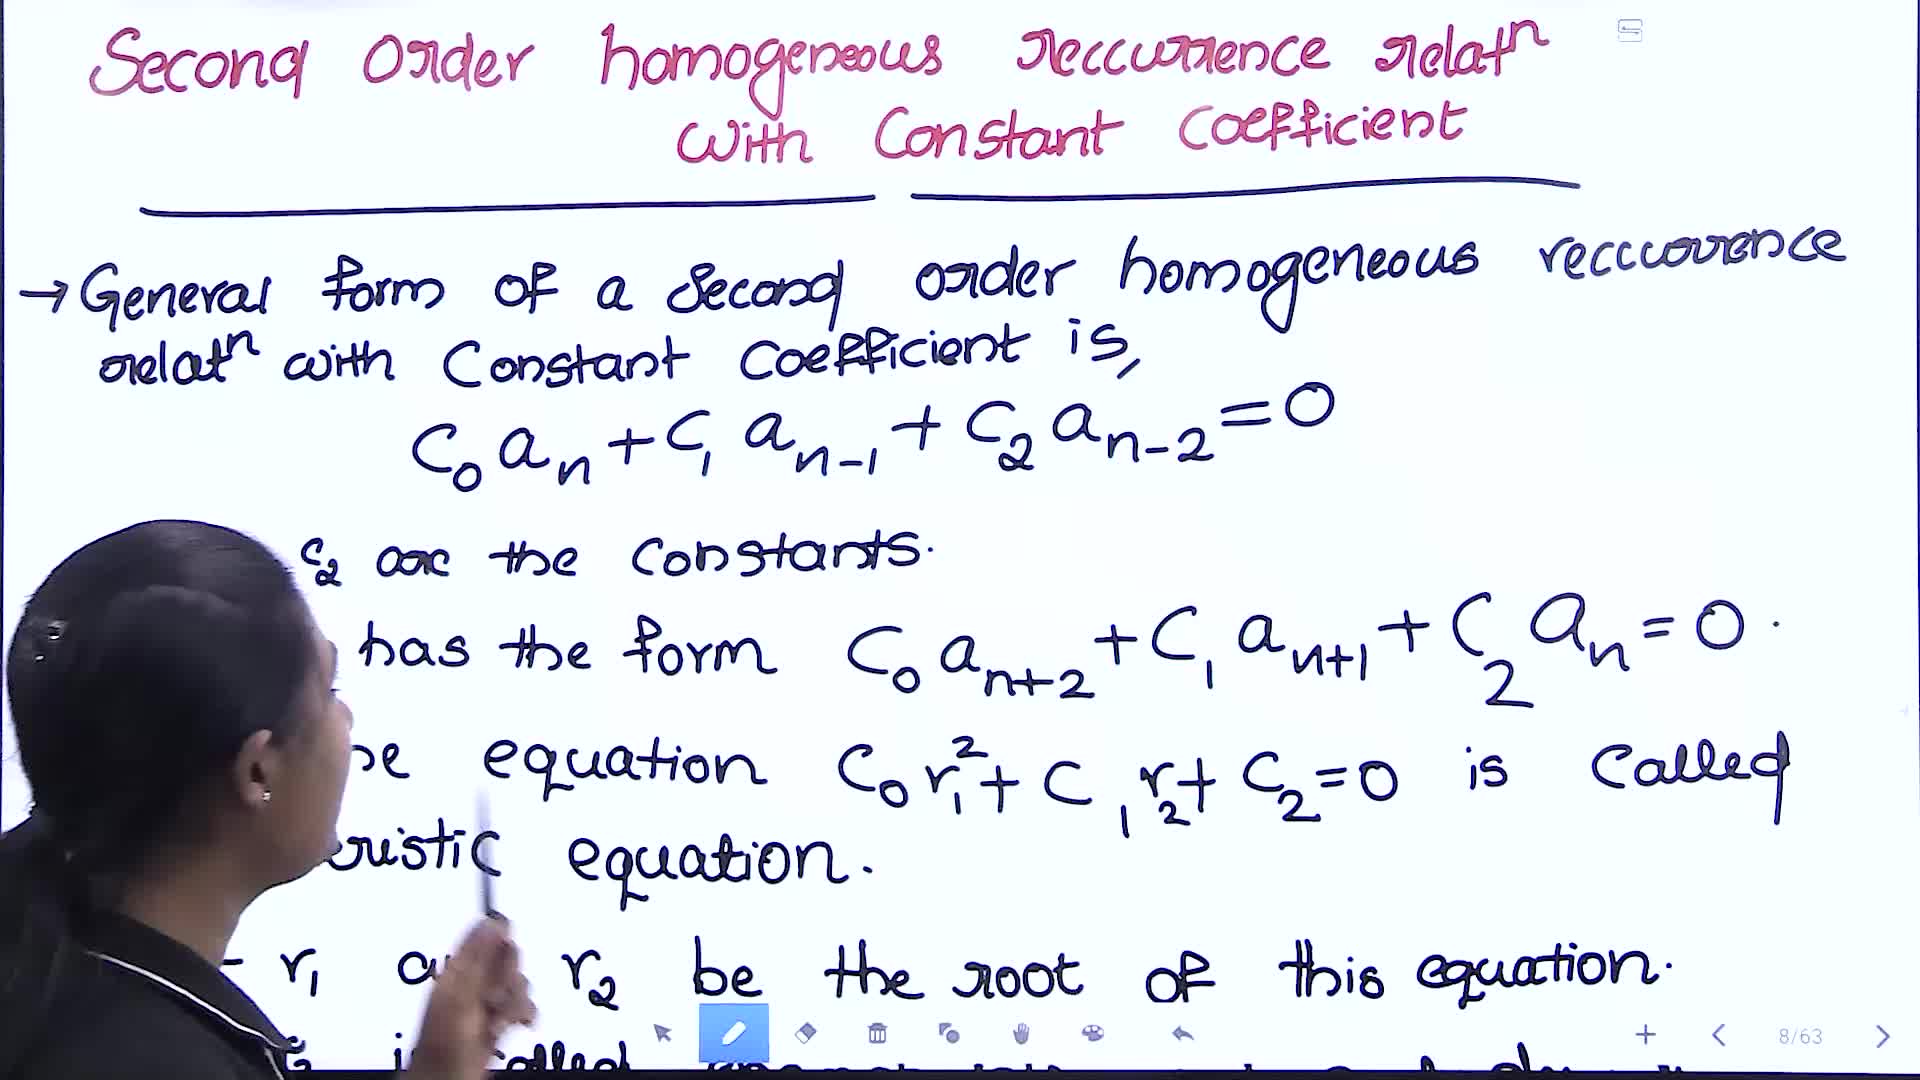 Second Order homogeneous reccurrence relatⁿ
with Constant Coefficient
→ General form of a Second order homogeneous reccurrence
relatⁿ with Constant Coefficient is,
C₀ aₙ + C₁ aₙ₋₁ + C₂ aₙ₋₂ = 0
C₂ are the Constants.
has the form C₀ aₙ₊₂ + C₁ aₙ₊₁ + C₂ aₙ = 0.
equation C₀ r₁² + C₁ r₂ + C₂ = 0 is called
eristic equation.
r₁ r₂ be the root of this equation.
8/63